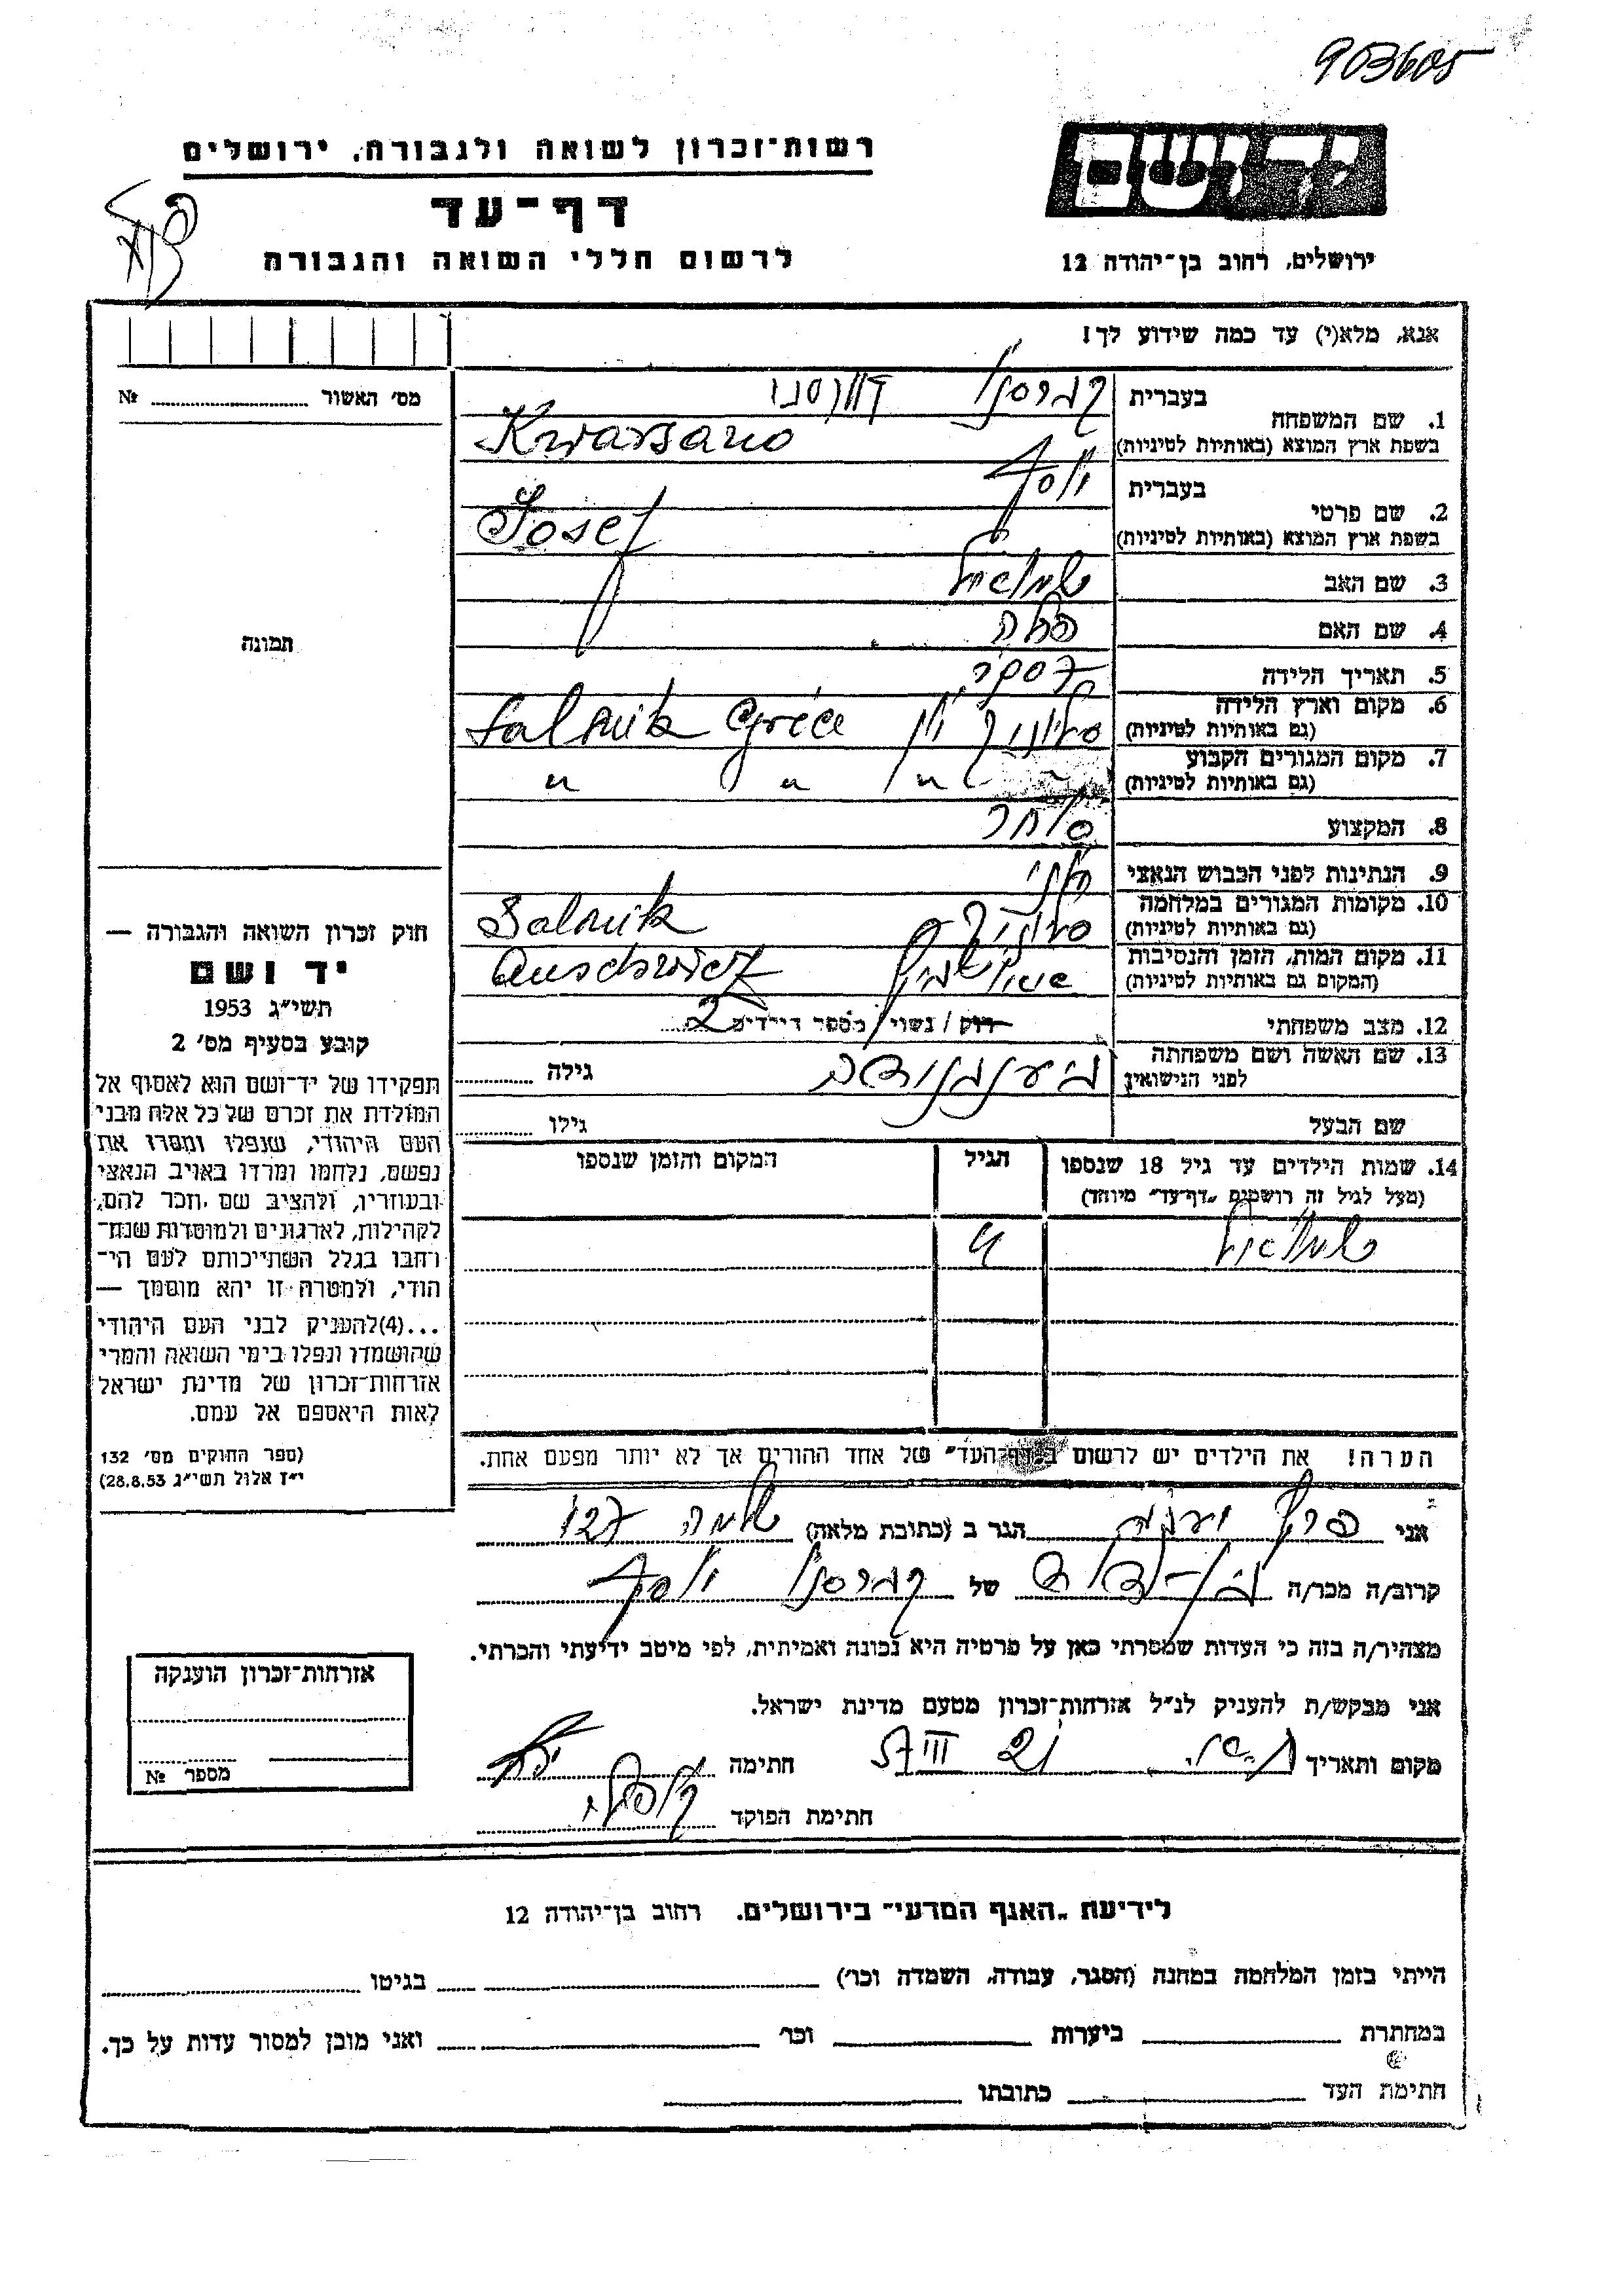 903605
יד ושם
רשות־זכרון לשואה ולגבורה, ירושלים
דף־עד
לרשום חללי השואה והגבורה
ירושלים, רחוב בן־יהודה 12
אנא, מלא(י) עד כמה שידוע לך!
מס׳ האשור № 
תמונה
חוק זכרון השואה והגבורה —
יד ושם
תשי״ג 1953
קובע בסעיף מס׳ 2
תפקידו של יד־ושם הוא לאסוף אל
המולדת את זכרם של כל אלה מבני
העם היהודי, שנפלו ומסרו את
נפשם, נלחמו ומרדו באויב הנאצי
ובעוזריו, ולהציב שם וזכר להם,
לקהילות, לארגונים ולמוסדות שנח־
רחבו בגלל השתייכותם לעם הי־
הודי, ולמטרה זו יהא מוסמך —
...(4)להעניק לבני העם היהודי
שהושמדו ונפלו בימי השואה והמרי
אזרחות־זכרון של מדינת ישראל
לאות היאספם אל עמם.
(ספר החוקים מס׳ 132
י״ז אלול תשי״ג 28.8.53)
1. שם המשפחה בעברית קורסנו
בשפת ארץ המוצא (באותיות לטיניות) Kwarsano
2. שם פרטי בעברית יוסף
בשפת ארץ המוצא (באותיות לטיניות) Josef
3. שם האב שמואל
4. שם האם
5. תאריך הלידה
6. מקום וארץ הלידה (גם באותיות לטיניות) סלוניקי יון Salonik Gréce
7. מקום המגורים הקבוע (גם באותיות לטיניות) " " " "
8. המקצוע סוחר
9. הנתינות לפני הכבוש הנאצי יוני
10. מקומות המגורים במלחמה (גם באותיות לטיניות) סלוניקי Salonik
11. מקום המות, הזמן והנסיבות (המקום גם באותיות לטיניות) אושויץ Auschwicz
12. מצב משפחתי רוק / נשוי / מספר הילדים 2
13. שם האשה ושם משפחתה לפני הנישואין גילה
שם הבעל גילו
14. שמות הילדים עד גיל 18 שנספו הגיל המקום והזמן שנספו
(מעל לגיל זה רושמים „דף־עד״ מיוחד)
שמואל 4
הערה! את הילדים יש לרשום ב„דף־העד״ של אחד ההורים אך לא יותר מפעם אחת.
אני הגר ב (כתובת מלאה) שלמה 127
קרוב/ה מכר/ה בן-דוד של קורסנו יוסף
מצהיר/ה בזה כי העדות שמסרתי כאן על פרטיה היא נכונה ואמיתית, לפי מיטב ידיעתי והכרתי.
אני מבקש/ת להעניק לנ״ל אזרחות־זכרון מטעם מדינת ישראל.
מקום ותאריך 57 III 21 חתימה
חתימת הפוקד
אזרחות־זכרון הוענקה
מספר №
לידיעת „האגף המדעי״ בירושלים. רחוב בן־יהודה 12
הייתי בזמן המלחמה במחנה (הסגר, עבודה, השמדה וכר׳) בגיטו
במחתרת ביערות וכר׳ ואני מובן למסור עדות על כך.
חתימת העד כתובתו